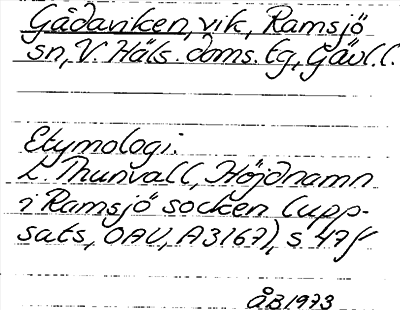 Gådaviken, vik, Ramsjö
sn, V. Häls. doms. tg, Gävl. l.
Etymologi:
L. Thunvall, Höjdnamn
i Ramsjö socken (upp-
sats, OAU, A3167), s 47f
ÅB 1973